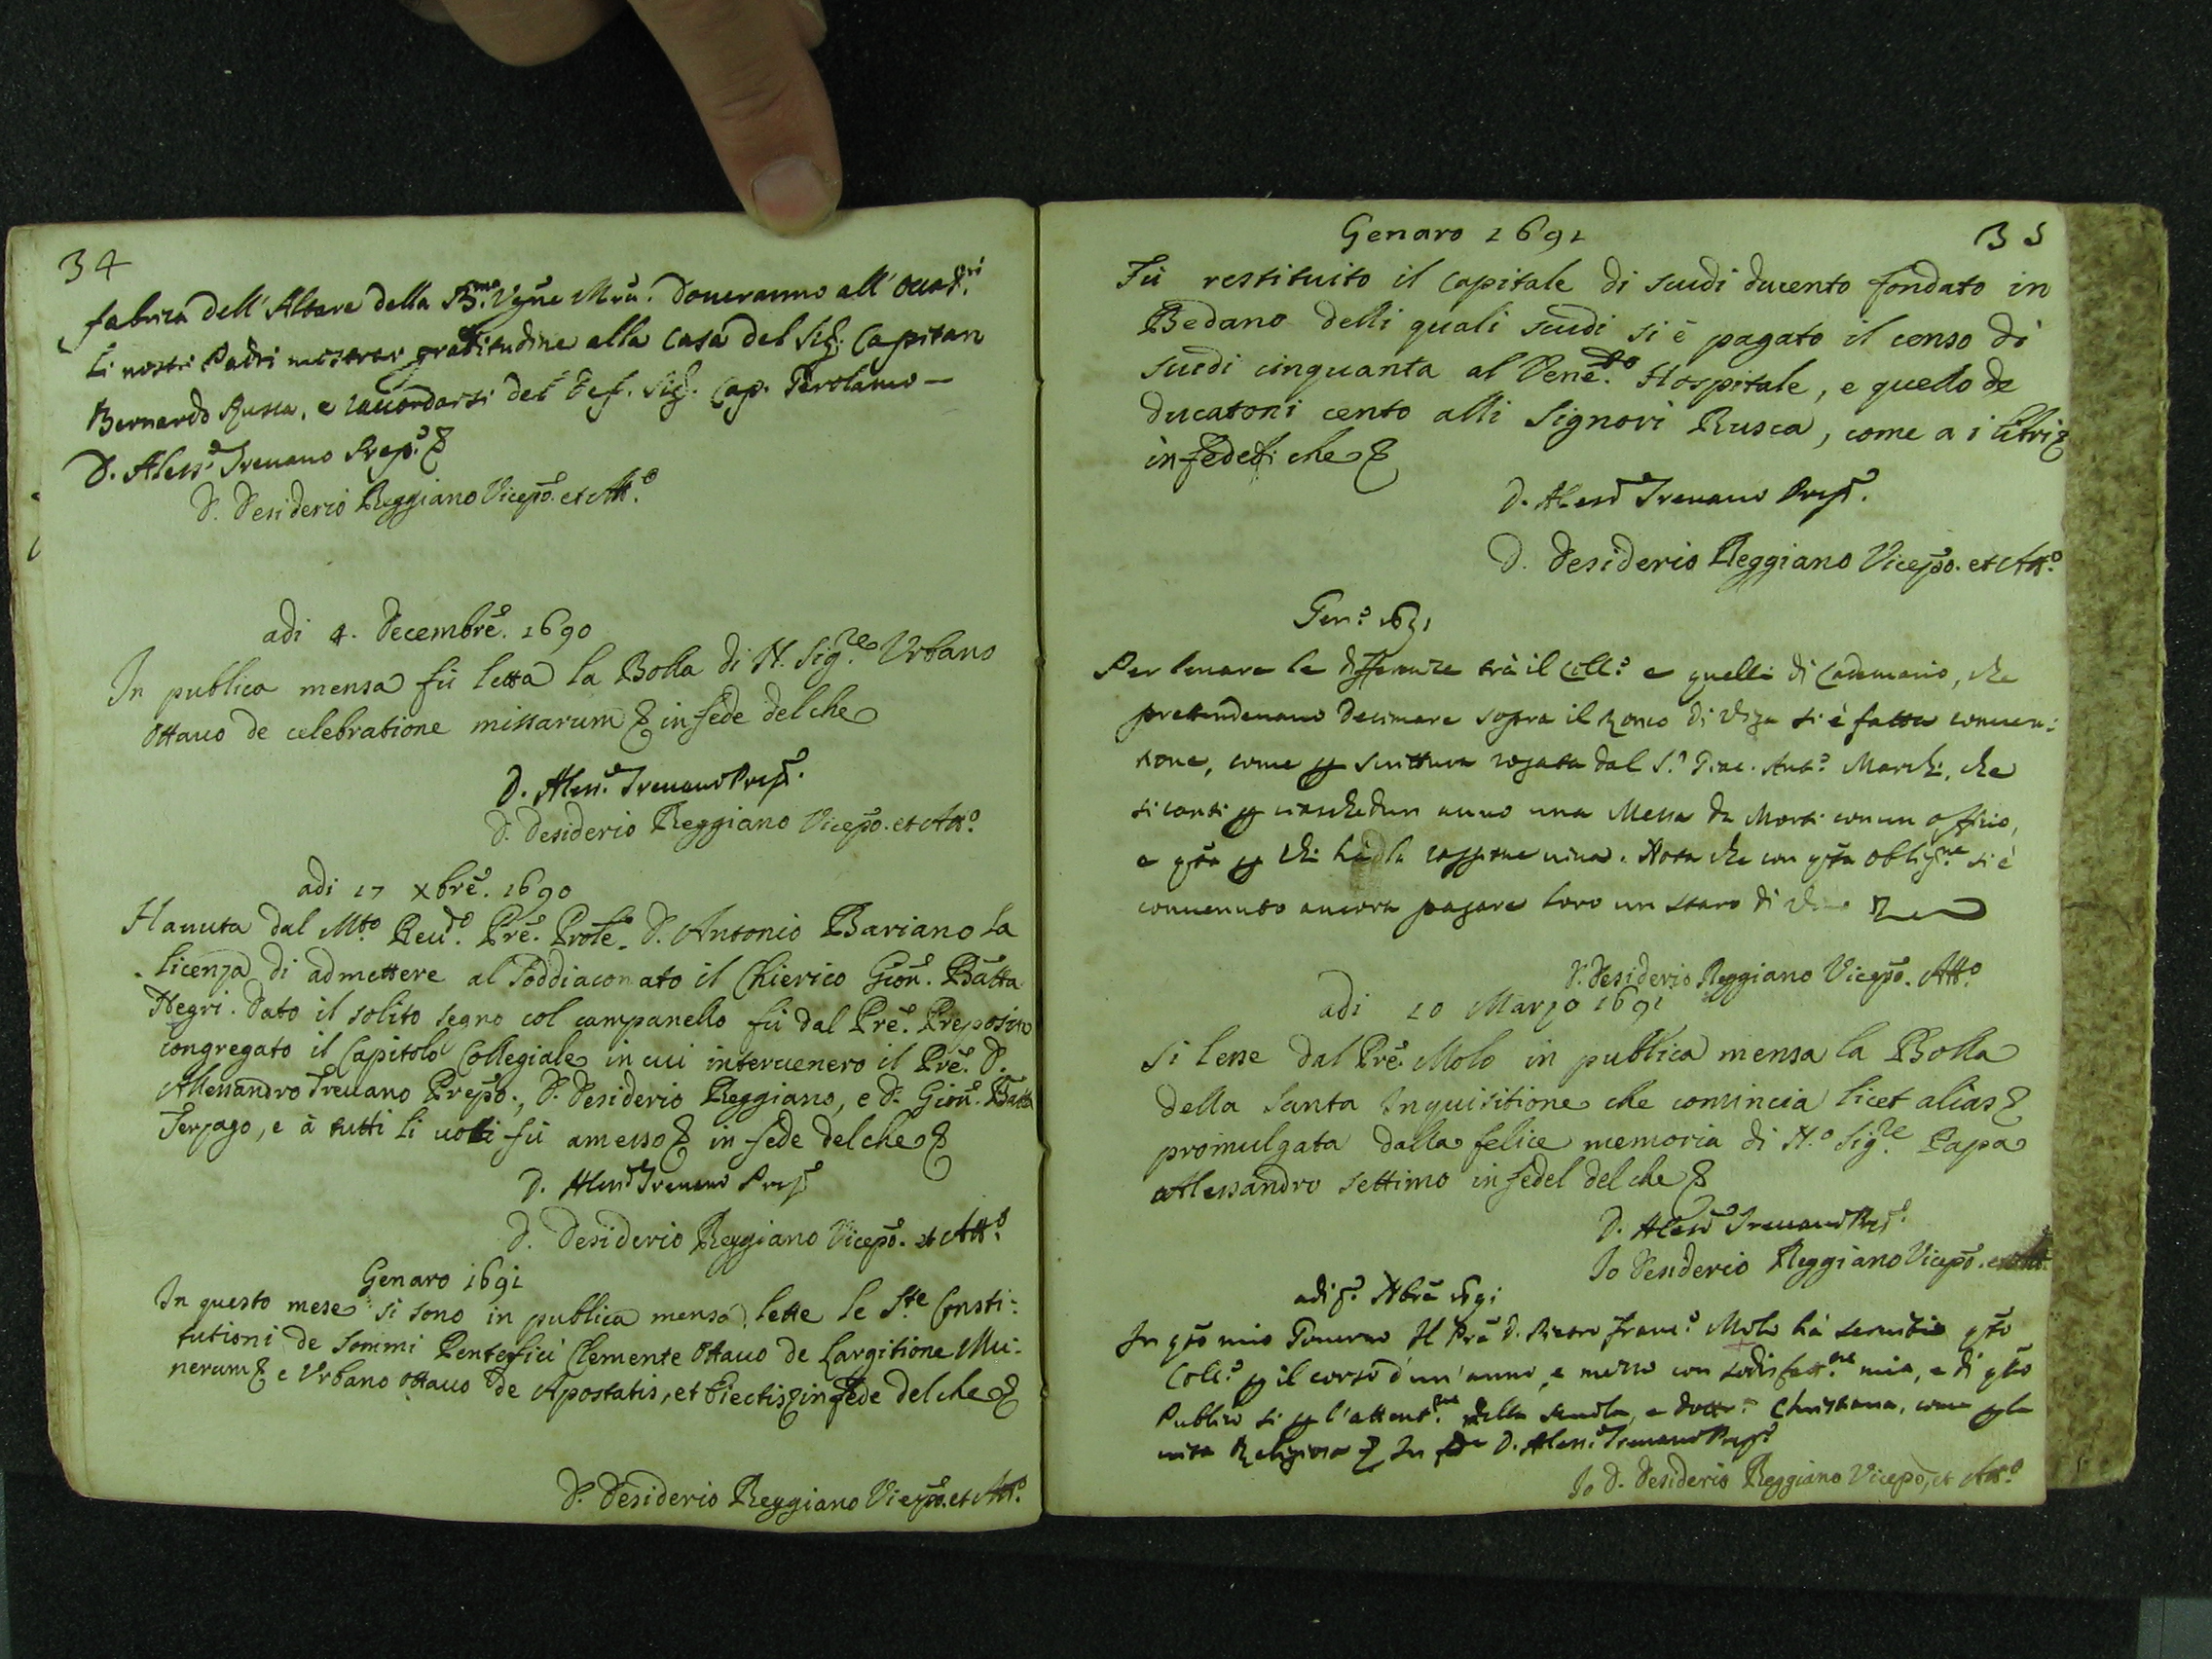 34
fabrica dell' Altare della B.ma Vgne Mra. doueranno all' occas.ni
li nostri Padri mostrar gratitudine alla Casa del Sig. Capitan
Bernardo Rusca, e raccordarsi del def. Sig. Cap. Gerolamo —
D. Aless.o Treuano Prep.o
D. Desiderio Reggiano Vicepo. et Att.o
adi 4. Decembre. 1690
In publica mensa fù letta la Bolla di N. Sig.re Vrbano
Ottauo de celebratione missarum & in fede del che
D. Aless.o Treuano Prep.o
D. Desiderio Reggiano Vicepo. et Att.o
adi 17 Xbre. 1690
Hauuta dal Mto. Reud.o Pre. Prole. D. Antonio Bariano la
licenza di admettere al Soddiaconato il Chierico Giou. Batta
Negri. Dato il solito segno col campanello fù dal Pre. Preposito
congregato il Capitolo Collegiale in cui interuenero il Pre. D.
Alessandro Treuano Prepo., D. Desiderio Reggiano, e D. Giou. Batta
Terzago, e à tutti li uoti fù amesso & in fede del che &
D. Aless.o Treuano Prep.o
D. Desiderio Reggiano Vicepo. et Att.o
Genaro 1691
In questo mese si sono in publica mensa lette le S.te Consti:
tutioni de Sommi Pontefici Clemente Ottauo de Largitione Mu:
nerum & e Vrbano Ottauo de Apostatis, et Eiectis & in fede del che &
D. Desiderio Reggiano Vicepo. et Att.o
35
Genaro 1691
Fù restituito il Capitale di scudi ducento fondato in
Bedano delli quali scudi si è pagato il censo di
scudi cinquanta al Vene.do Hospitale, e quello de
ducatoni cento alli Signori Rusca, come a i libri &
in fede di che &
D. Aless.o Treuano Prep.o
D. Desiderio Reggiano Vicepo. et Att.o
Gen.o 1691
Per leuare le differenze trà il Coll.o e quelli di Cademario, che
pretendeuano decimare sopra il Ronco di si è fatta conuen:
tione, come p scrittura rogata dal S.r Giac. Ant.o Marchi, che
si canti p ciaschedun anno una Messa da Morti con un officio,
e qta p chi hà la uiua. Nota che con qta oblig.ne si è
conuenuto ancora pagare loro un staro di
D. Desiderio Reggiano Vicepo. Att.o
adi 20 Marzo 1691
Si lesse dal Pre. Molo in publica mensa la Bolla
della Santa Inquisitione che comincia licet alias &
promulgata dalla felice memoria di N.o Sig.re Papa
Alessandro settimo in fedel del che &
D. Aless.o Treuano Prep.o
Io Desiderio Reggiano Vicepo. et Att.
adi p.o Nbre 1691
In qto mio Gouerno Il Pre D. Pietro Franc.o Molo hà seruito qto
Coll.o p il corso d'un'anno, e mezzo con sodisfatt.ne mia, e di qto
Publico si p l'attent.ne della scuola, e dottr.a Christiana, come p la
uita Religiosa & In fede D. Aless.o Treuano Prep.o
Io D. Desiderio Reggiano Vicepo, et Att.o